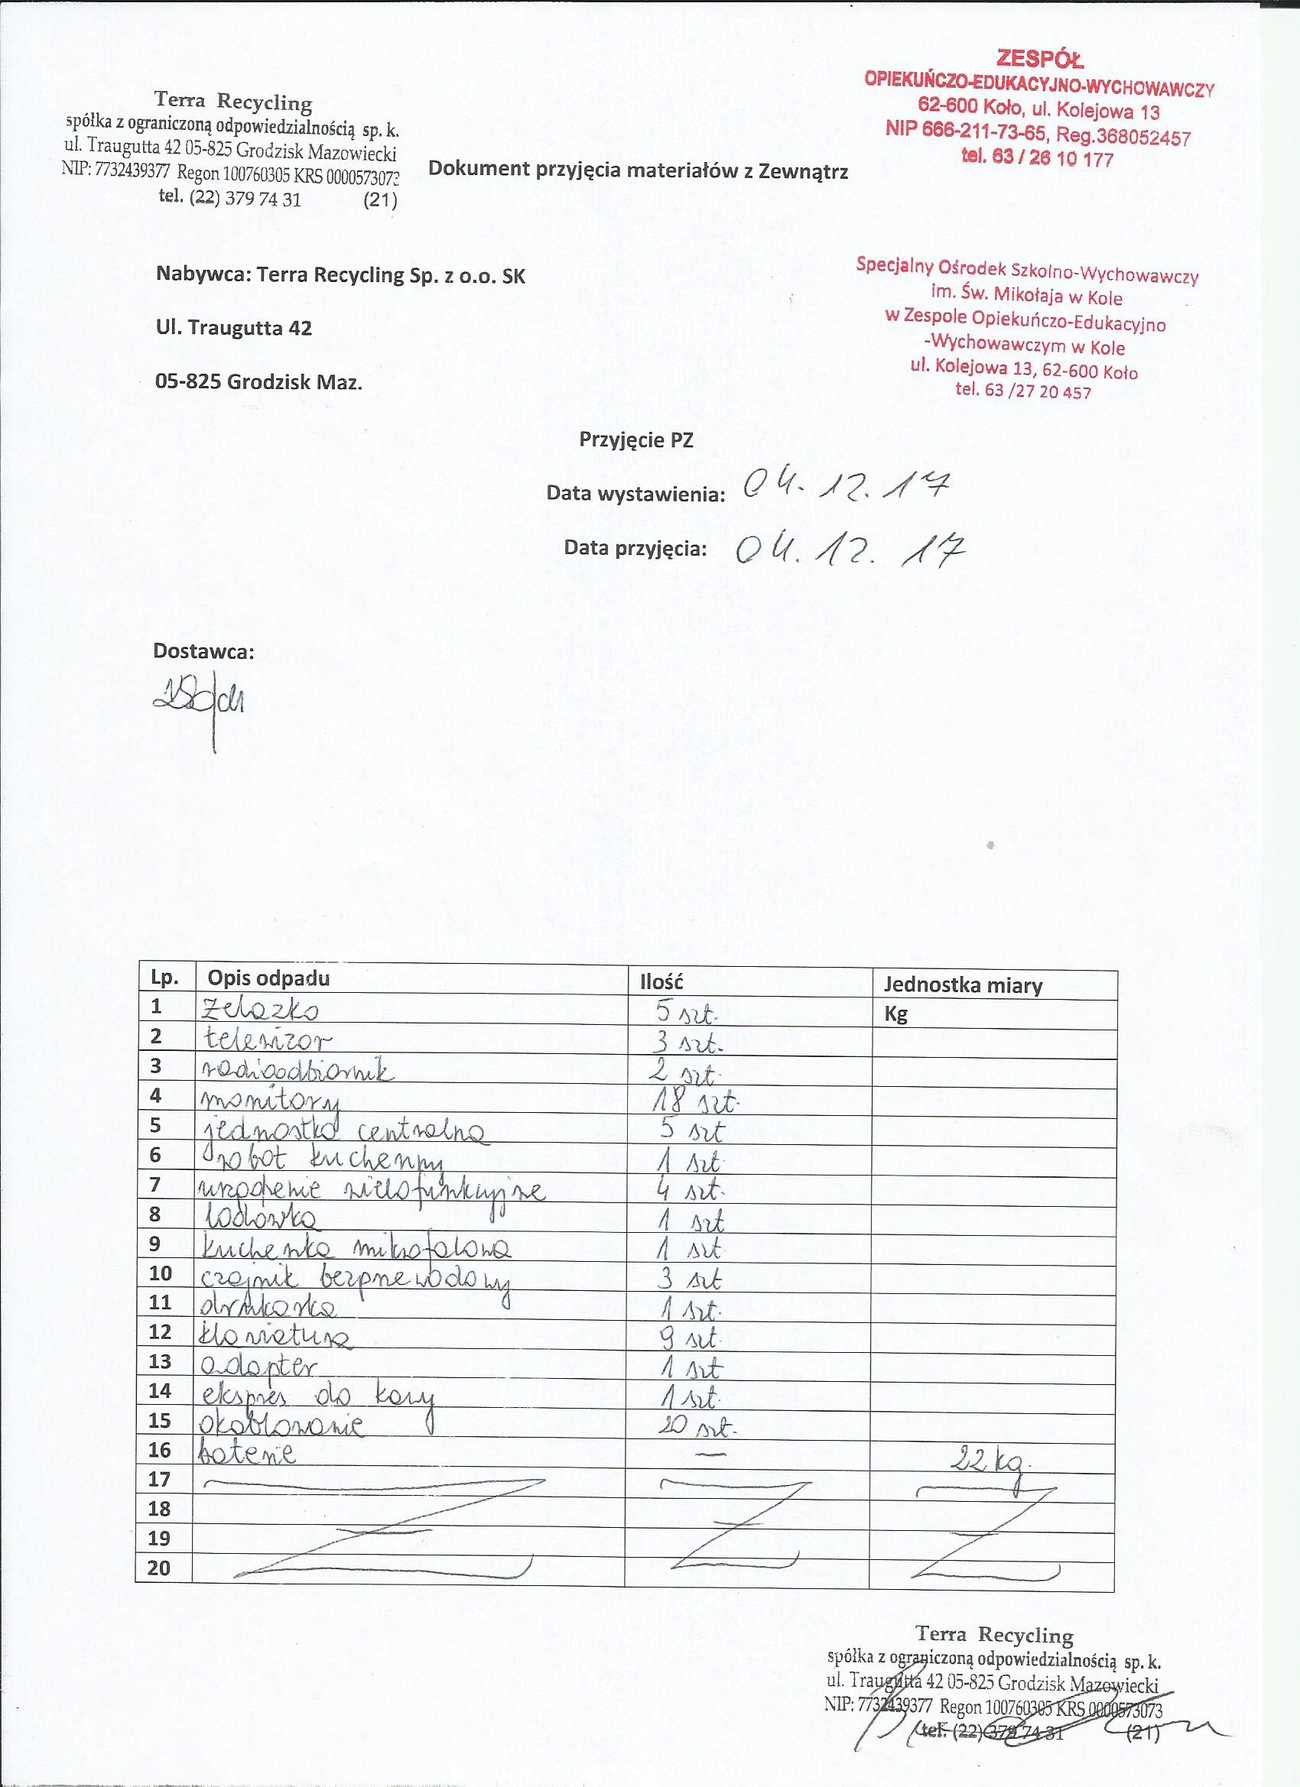 Terra Recycling
spółka z ograniczoną odpowiedzialnością sp. k.
ul. Traugutta 42 05-825 Grodzisk Mazowiecki
NIP: 7732439377 Regon 100760305 KRS 0000573073
tel. (22) 379 74 31 (21)
ZESPÓŁ
OPIEKUŃCZO-EDUKACYJNO-WYCHOWAWCZY
62-600 Koło, ul. Kolejowa 13
NIP 666-211-73-65, Reg.368052457
tel. 63 / 26 10 177
Dokument przyjęcia materiałów z Zewnątrz
Nabywca: Terra Recycling Sp. z o.o. SK
Ul. Traugutta 42
05-825 Grodzisk Maz.
Specjalny Ośrodek Szkolno-Wychowawczy
im. Św. Mikołaja w Kole
w Zespole Opiekuńczo-Edukacyjno
-Wychowawczym w Kole
ul. Kolejowa 13, 62-600 Koło
tel. 63 /27 20 457
Przyjęcie PZ
Data wystawienia: 04.12.17
Data przyjęcia: 04.12.17
Dostawca:
Lp. Opis odpadu Ilość Jednostka miary
1 żelazko 5 szt. Kg
2 telewizor 3 szt.
3 radioodbiornik 2 szt.
4 monitory 18 szt.
5 jednostka centralna 5 szt
6 robot kuchenny 1 szt
7 urządzenie wielofunkcyjne 4 szt.
8 lodówka 1 szt
9 kuchenka mikrofalowa 1 szt
10 czajnik bezprzewodowy 3 szt
11 drukarka 1 szt.
12 klawiatura 9 szt.
13 adapter 1 szt
14 ekspres do kawy 1 szt.
15 okablowanie 20 szt.
16 baterie — 22 kg.
17
18
19
20
Terra Recycling
spółka z ograniczoną odpowiedzialnością sp. k.
ul. Traugutta 42 05-825 Grodzisk Mazowiecki
NIP: 7732439377 Regon 100760305 KRS 0000573073
tel. (22) 379 74 31 (21)